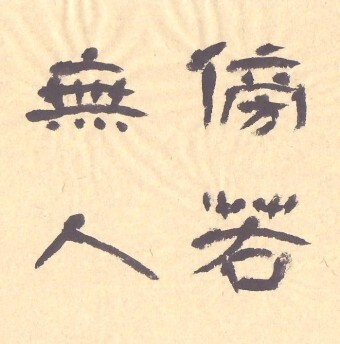 傍若
無人